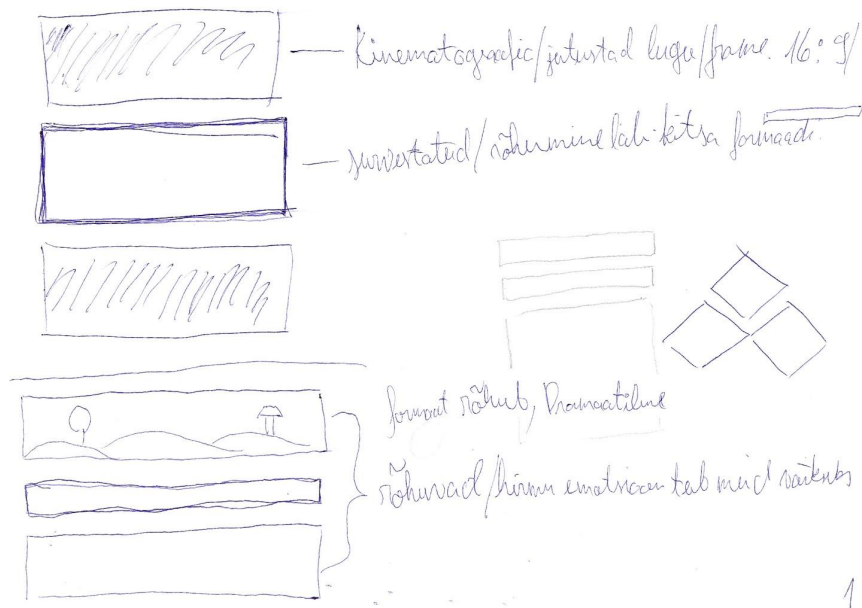 Kinematograafia/jutustad lugu/frame. 16:9/
survestatud/rõhumine läbi kitsa formaadi.
formaat rõhub, Dramaatiline
rõhuvad/hirmu emotsioon teeb meid väikseks
1